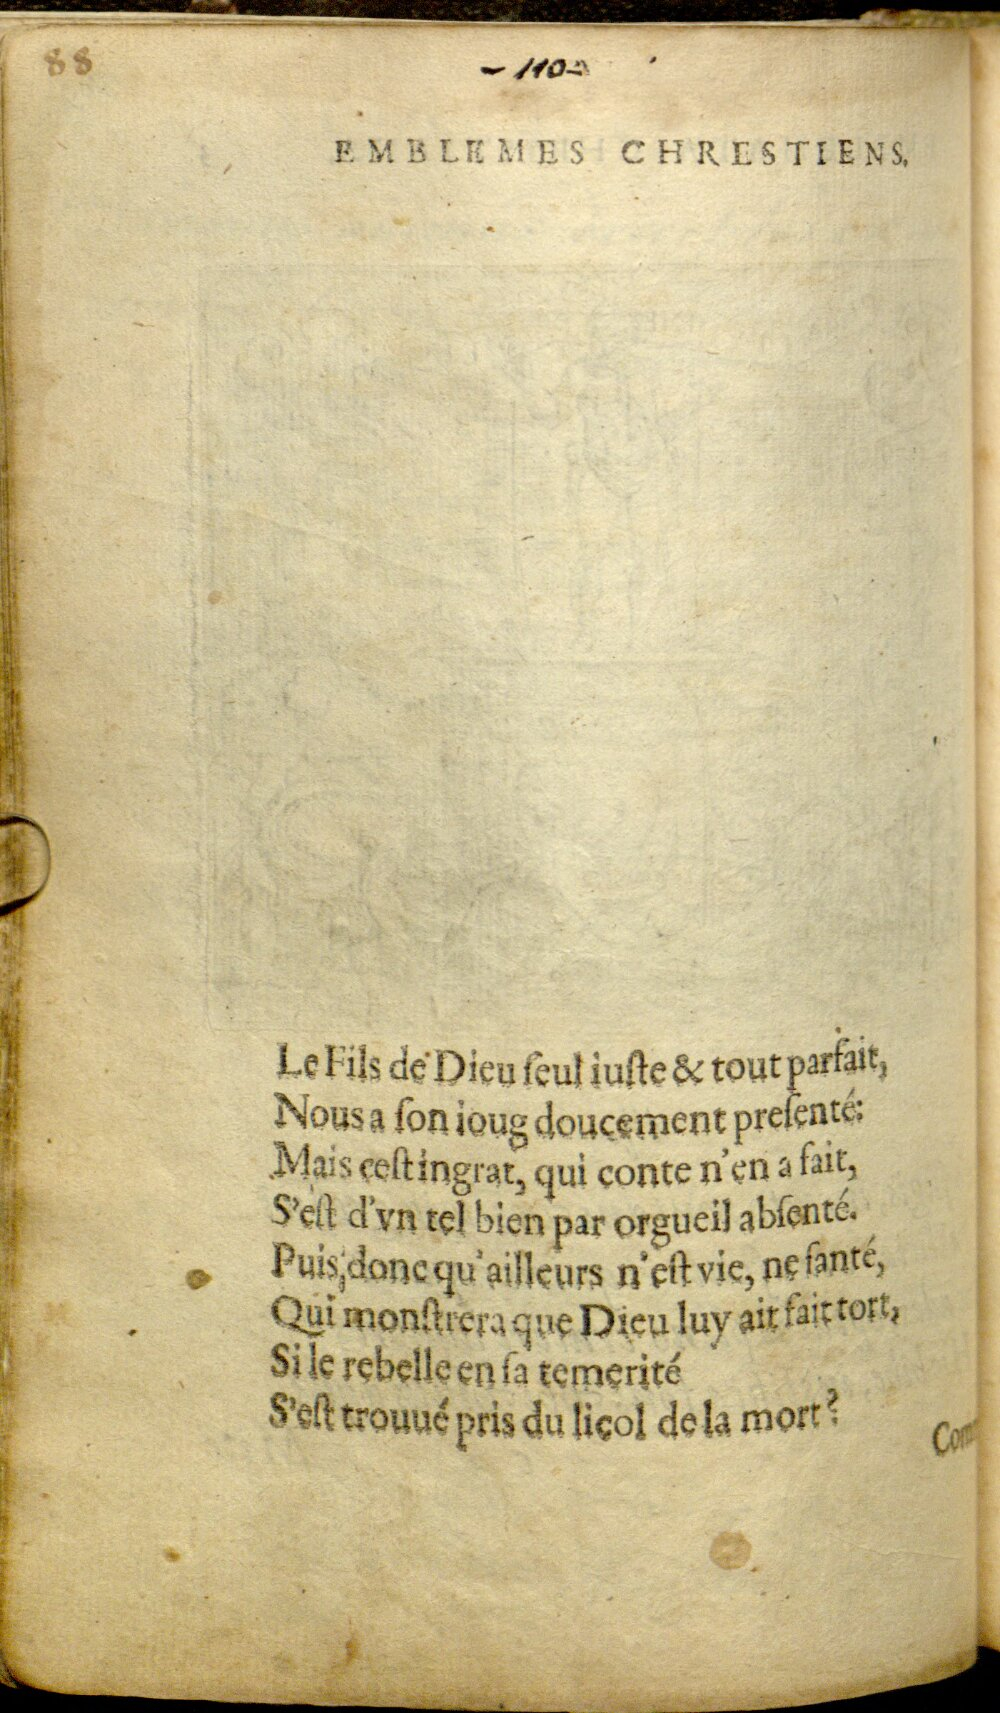 88
- 110 -
EMBLEMES CHRESTIENS.
Le Fils de Dieu ſeul iuſte & tout parfait,
Nous a ſon ioug doucement preſenté:
Mais ceſt ingrat, qui conte n'en a fait,
S'eſt d'vn tel bien par orgueil abſenté.
Puis donc qu'ailleurs n'eſt vie, ne ſanté,
Qui monſtrera que Dieu luy ait fait tort,
Si le rebelle en ſa temerité
S'eſt trouué pris du licol de la mort?